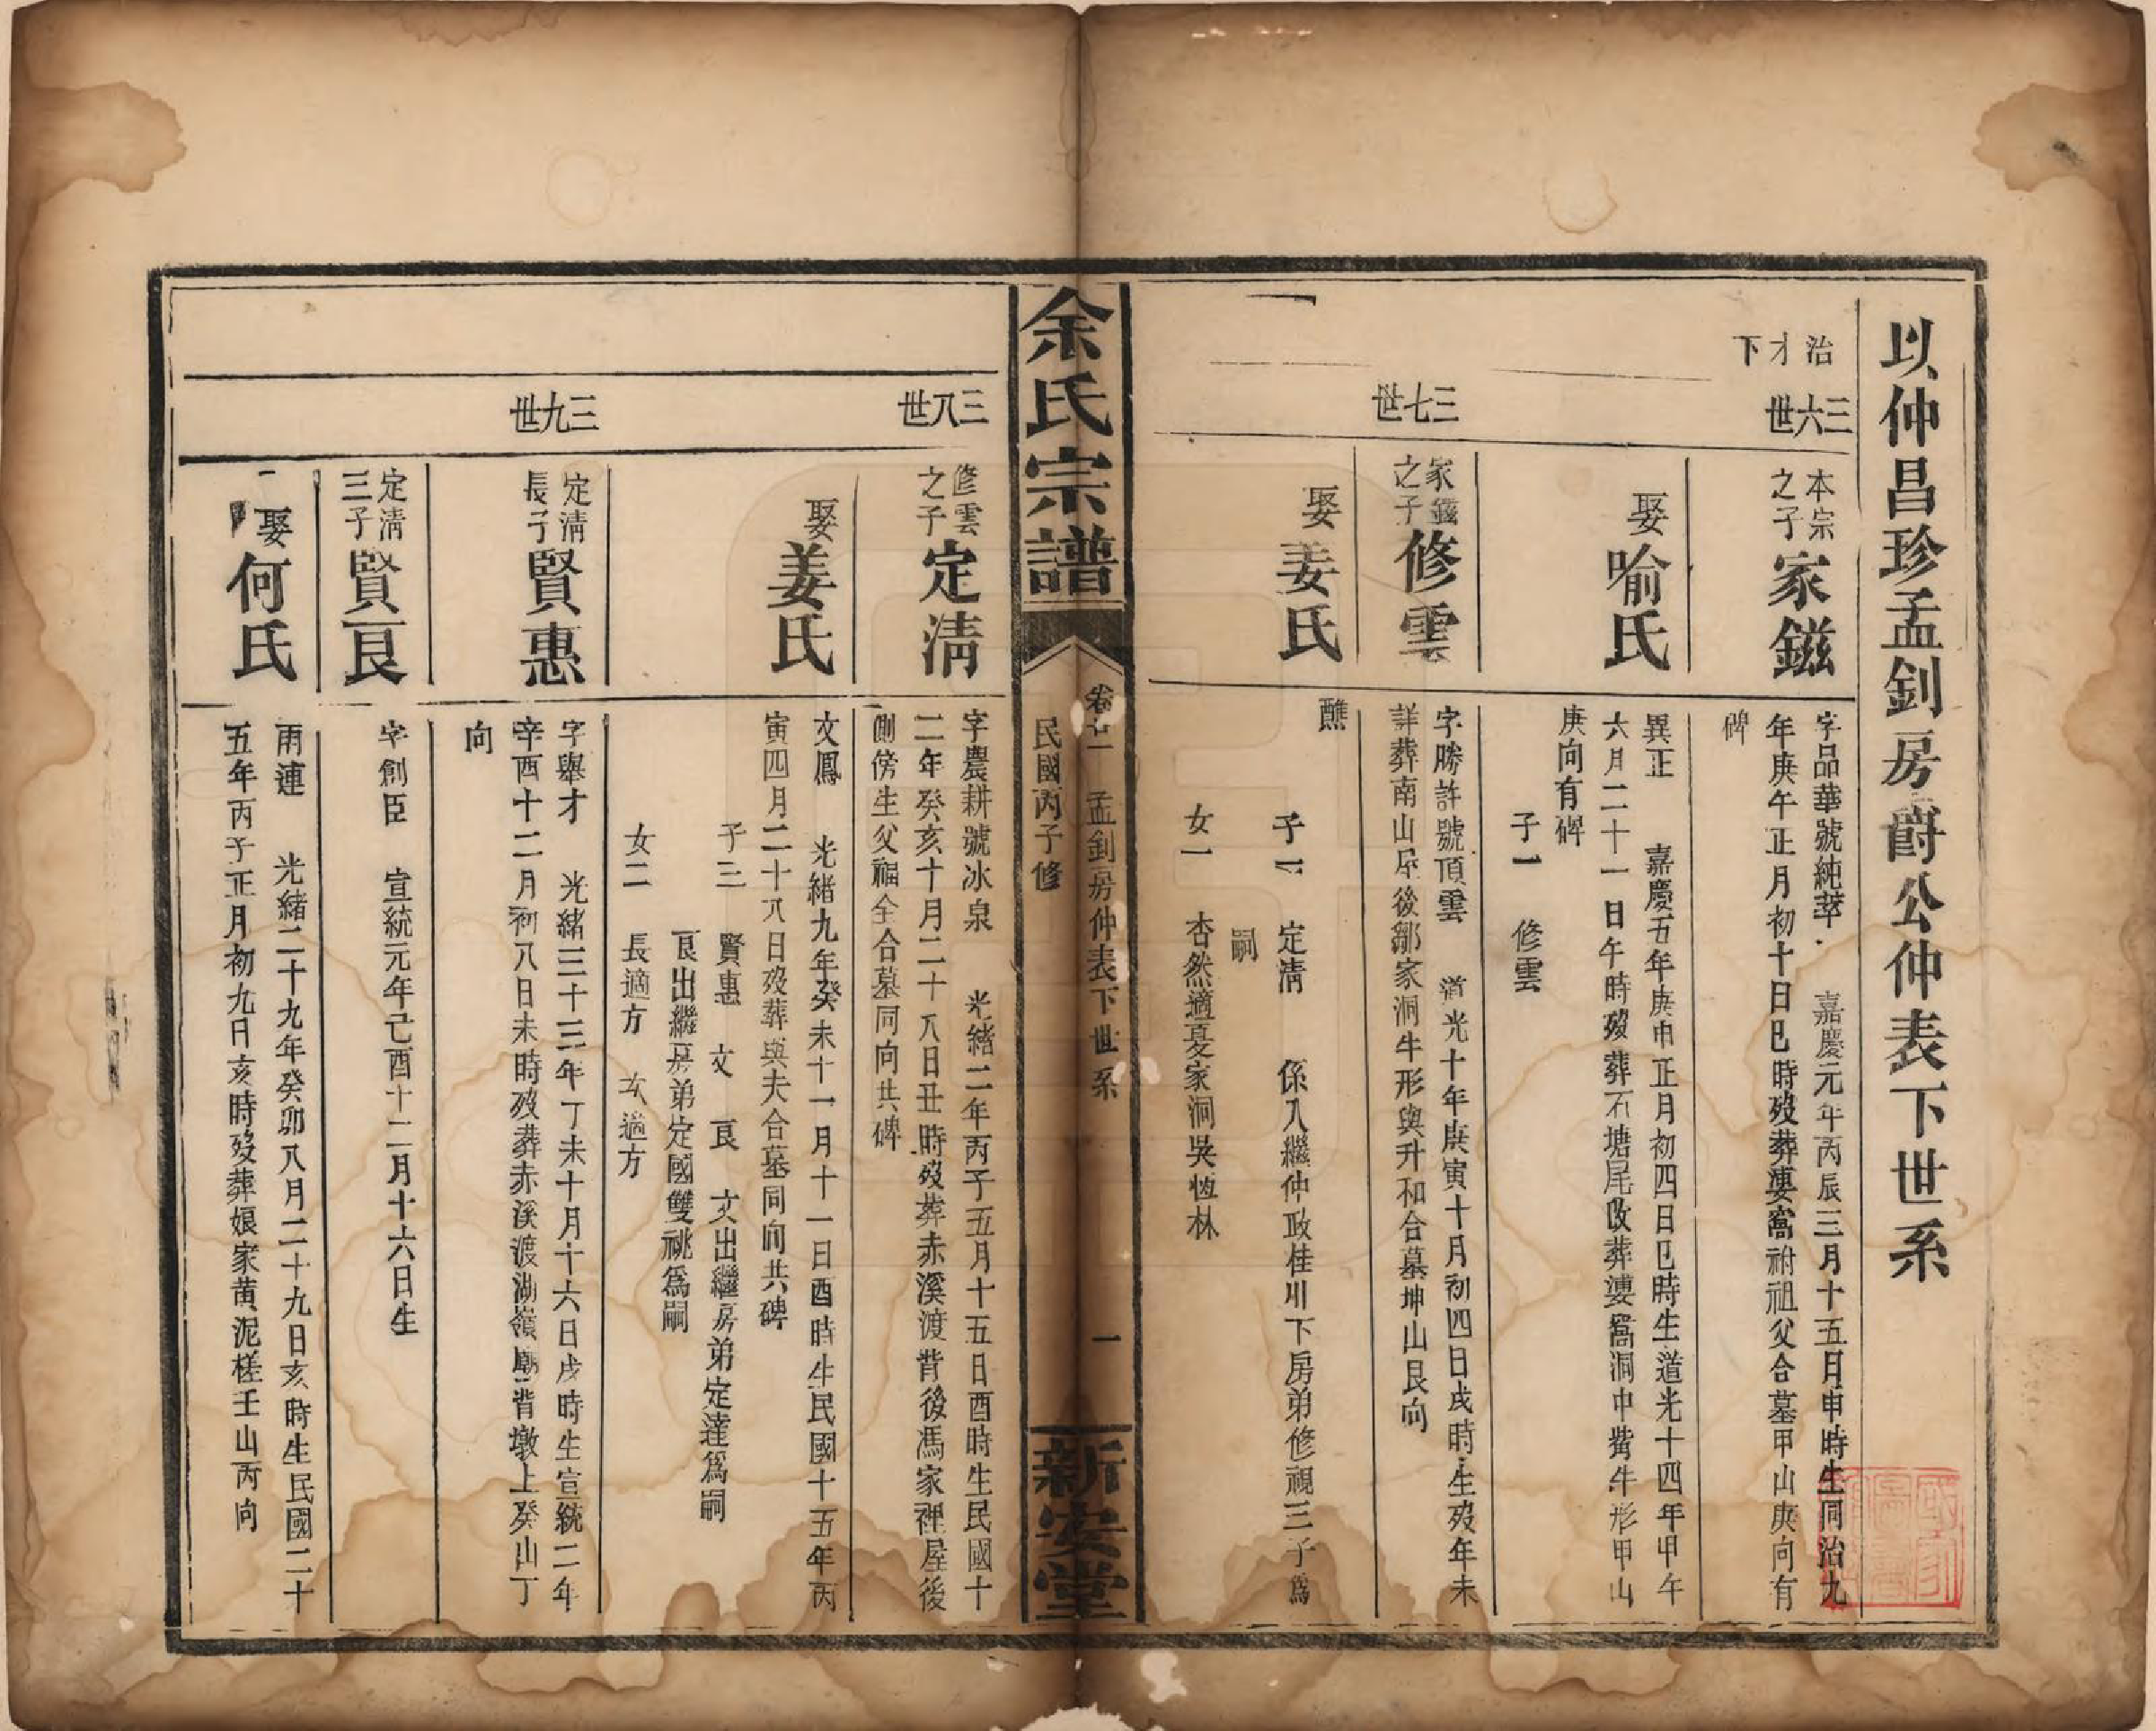 以仲昌珍孟釗房爵公仲表下世系
治才下
三六世
本宗之子
家鎡
字品華號純萃 嘉慶元年丙辰三月十五月申時生同治九
年庚午正月初十日巳時歿葬婁窩祔祖父合墓甲山庚向有
碑
娶
喻氏
異正 嘉慶五年庚申正月初四日巳時生道光十四年甲午
六月二十一日午時歿葬石塘尾改葬婁窩洞中眥牛形甲山
庚向有碑
子一 修雲
三七世
家鎡之子
修雲
字勝許號頂雲 道光十年庚寅十月初四日戌時生歿年未
詳葬南山屋後鄒家洞牛形與升和合墓坤山艮向
娶
姜氏
醮
子一 定清 係入繼仲政桂川下房弟修視三子爲
嗣
女一 杏然適夏家洞吳恆林
余氏宗譜
卷廿一 孟釗房仲表下世系 一
民國丙子修
新安堂
三八世
修雲之子
定清
字農耕號冰泉 光緒二年丙子五月十五日酉時生民國十
二年癸亥十月二十八日丑時歿葬赤溪渡背後馮家裡屋後
側傍生父福全合墓同向共碑
娶
姜氏
文鳳 光緒九年癸未十一月十一日酉時生民國十五年丙
寅四月二十八日歿葬與夫合墓同向共碑
子三 賢惠 文 良 文出繼房弟定達爲嗣
良出繼房弟定國雙祧爲嗣
女二 長適方 次適方
三九世
定清長子
賢惠
字舉才 光緒三十三年丁未十月十六日戌時生宣統二年
辛酉十二月初八日未時歿葬赤溪渡湖嶺廟背墩上癸山丁
向
定清三子
賢良
字創臣 宣統元年己酉十二月十六日生
娶
何氏
雨連 光緒二十九年癸卯八月二十九日亥時生民國二十
五年丙子正月初九日亥時歿葬娘家黄泥槎壬山丙向